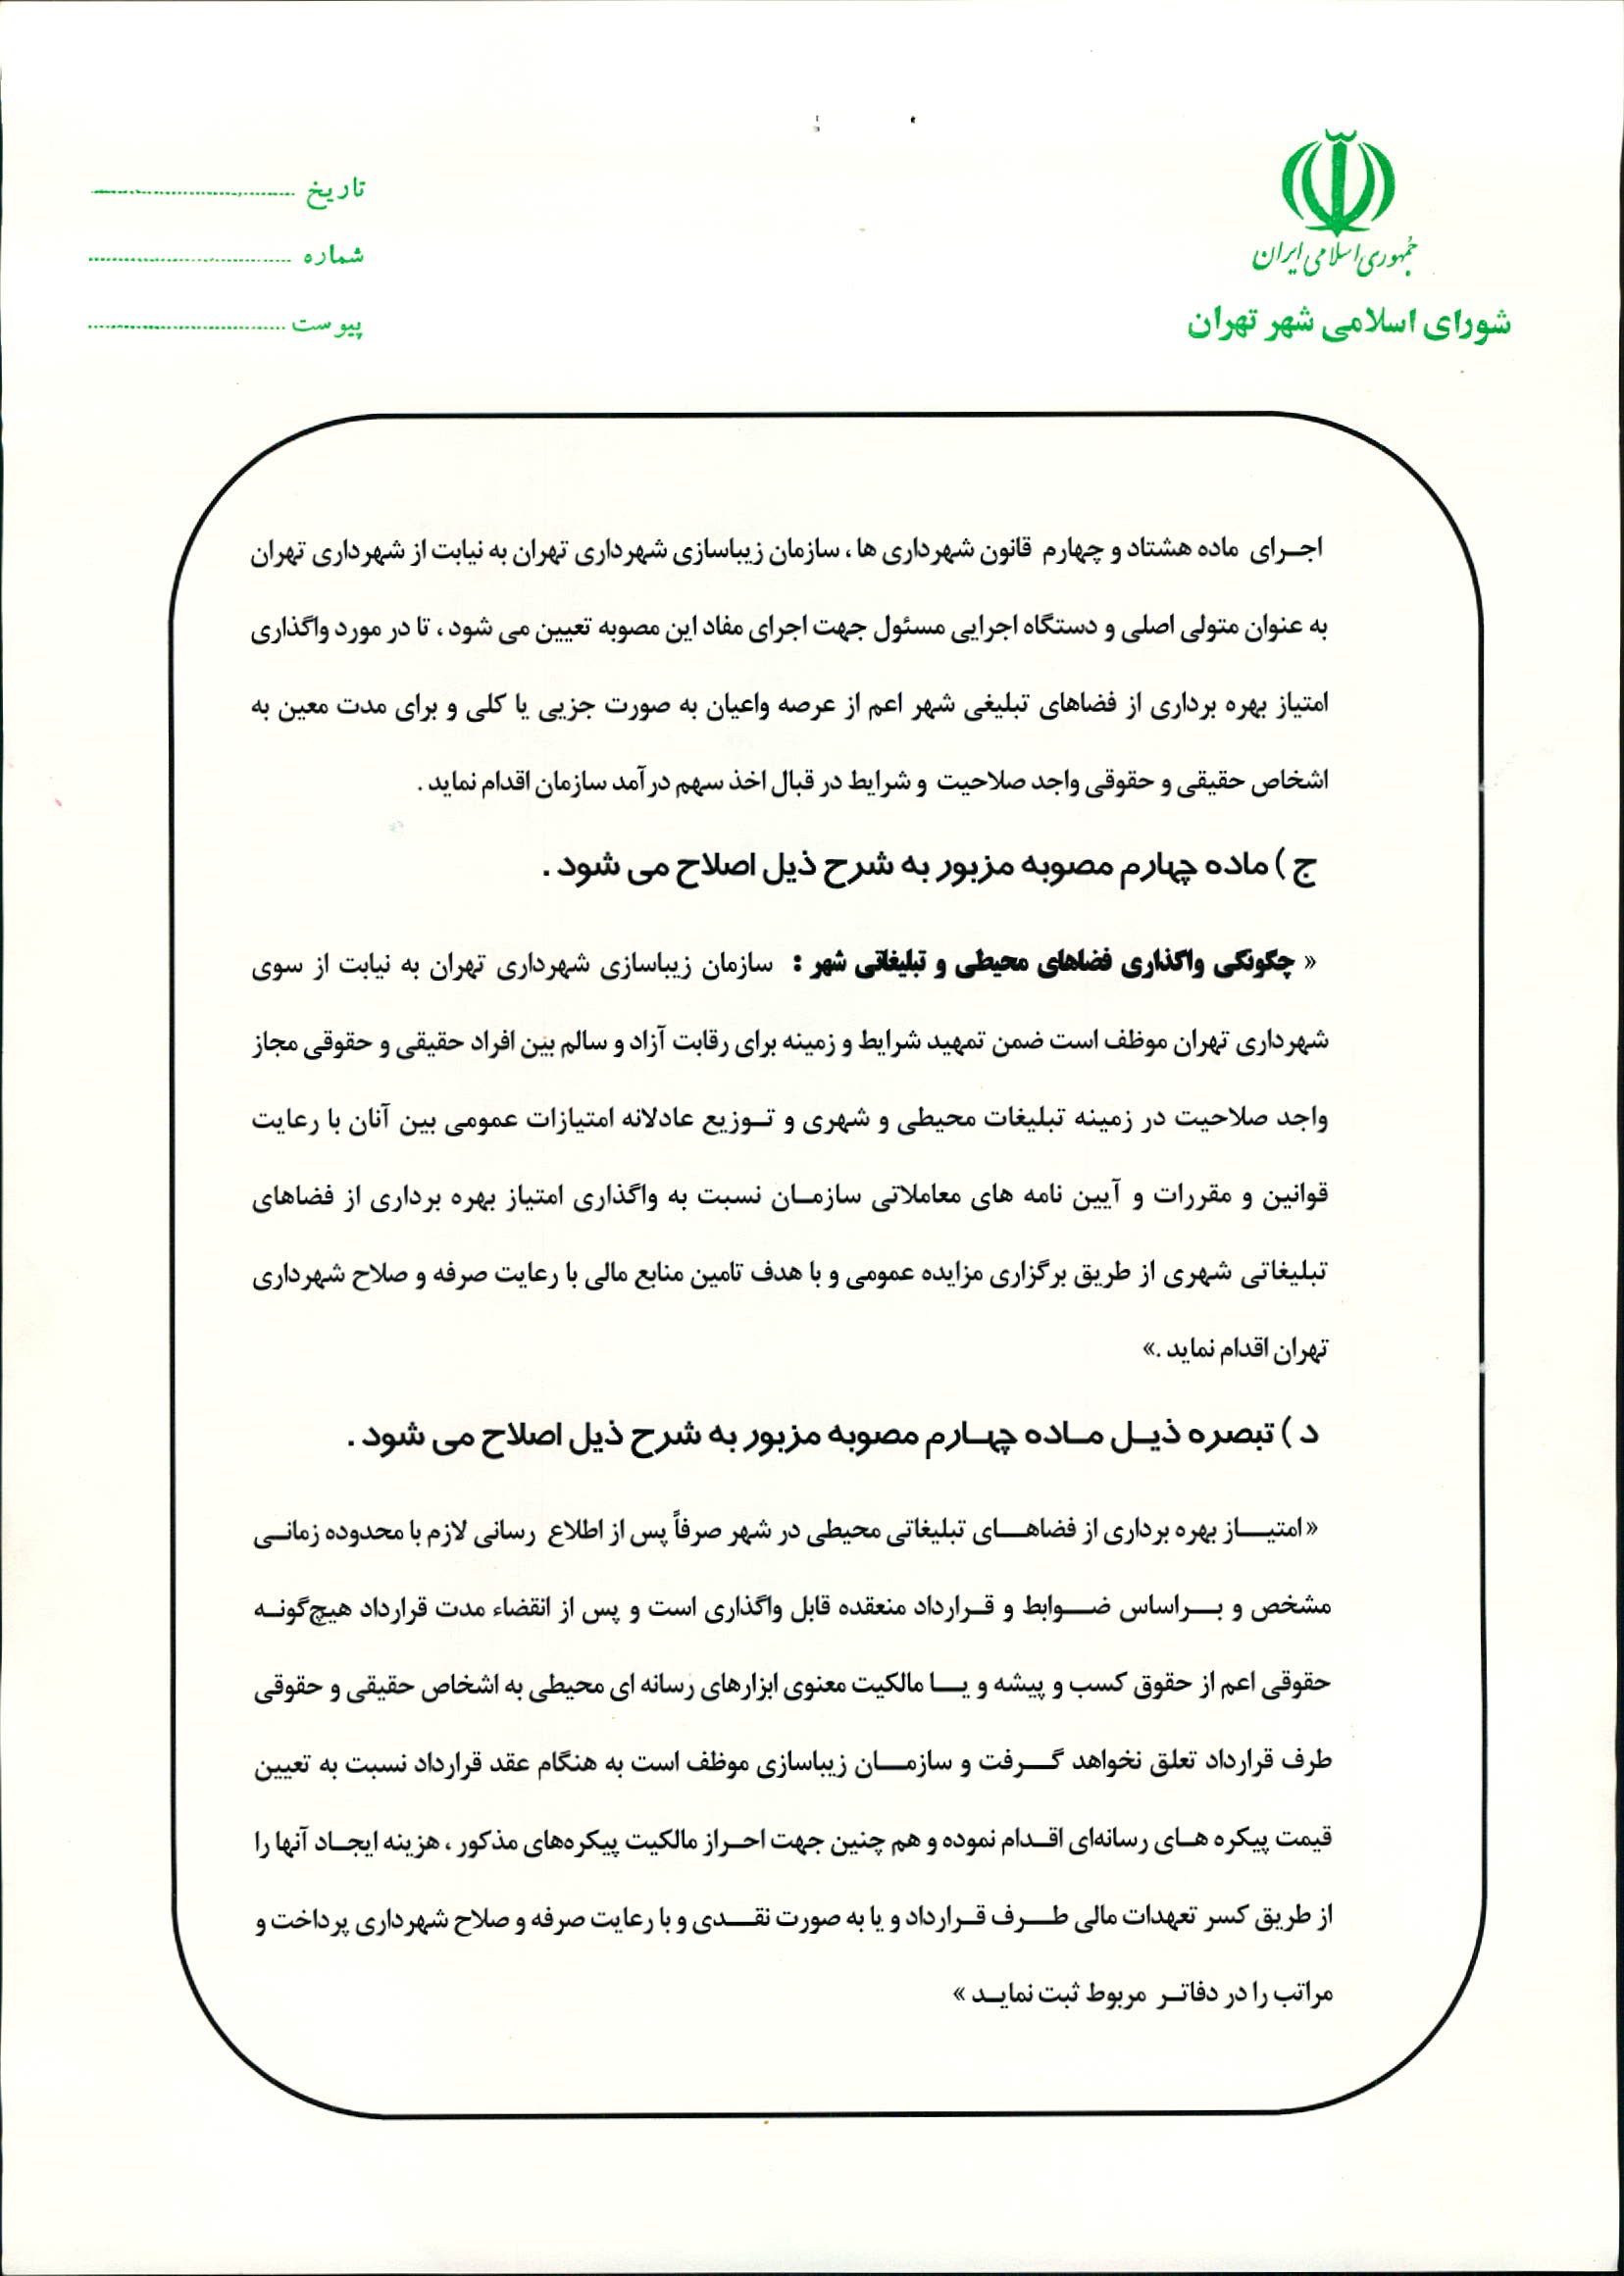 جمهوری اسلامی ایران
شورای اسلامی شهر تهران
تاریخ ..............................
شماره ..............................
پیوست ..............................
اجـرای ماده هشتاد و چهارم قانون شهرداری ها ، سازمان زیباسازی شهرداری تهران به نیابت از شهرداری تهران
به عنوان متولی اصلی و دستگاه اجرایی مسئول جهت اجرای مفاد این مصوبه تعیین می شود ، تا در مورد واگذاری
امتیاز بهره برداری از فضاهای تبلیغی شهر اعم از عرصه واعیان به صورت جزیی یا کلی و برای مدت معین به
اشخاص حقیقی و حقوقی واجد صلاحیت و شرایط در قبال اخذ سهم درآمد سازمان اقدام نماید .
ج ) ماده چهارم مصوبه مزبور به شرح ذیل اصلاح می شود .
« چگونگی واگذاری فضاهای محیطی و تبلیغاتی شهر : سازمان زیباسازی شهرداری تهران به نیابت از سوی
شهرداری تهران موظف است ضمن تمهید شرایط و زمینه برای رقابت آزاد و سالم بین افراد حقیقی و حقوقی مجاز
واجد صلاحیت در زمینه تبلیغات محیطی و شهری و تـوزیع عادلانه امتیازات عمومی بین آنان با رعایت
قوانین و مقررات و آیین نامه های معاملاتی سازمـان نسبت به واگذاری امتیاز بهره برداری از فضاهای
تبلیغاتی شهری از طریق برگزاری مزایده عمومی و با هدف تامین منابع مالی با رعایت صرفه و صلاح شهرداری
تهران اقدام نماید .»
د ) تبصره ذیـل مـاده چهـارم مصوبه مزبور به شرح ذیل اصلاح می شود .
« امتیـاز بهره برداری از فضاهـای تبلیغاتی محیطی در شهر صرفاً پس از اطلاع رسانی لازم با محدوده زمانـی
مشخص و بـراساس ضـوابط و قـرارداد منعقده قابل واگذاری است و پس از انقضاء مدت قرارداد هیچ‌گونـه
حقوقی اعم از حقوق کسب و پیشه و یـا مالکیت معنوی ابزارهای رسانه ای محیطی به اشخاص حقیقی و حقوقی
طرف قرارداد تعلق نخواهد گـرفت و سازمـان زیباسازی موظف است به هنگام عقد قرارداد نسبت به تعیین
قیمت پیکره هـای رسانه‌ای اقـدام نموده و هم چنین جهت احـراز مالکیت پیکره‌های مذکور ، هزینه ایجـاد آنها را
از طریق کسر تعهدات مالی طـرف قـرارداد و یا به صورت نقـدی و با رعایت صرفه و صلاح شهرداری پرداخت و
مراتب را در دفاتـر مربوط ثبت نمایـد »